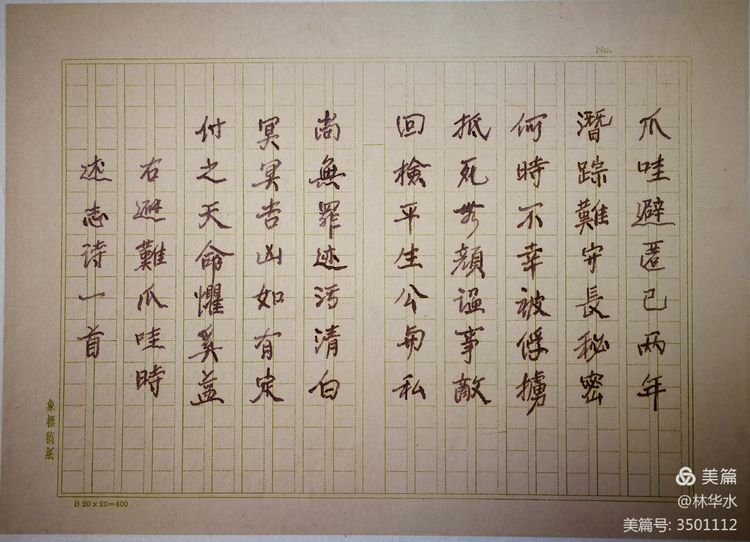 No.
爪哇避匿已两年
潛踪難守長秘密
何時不幸被俘擄
抵死無顏諡事敵
回檢平生公與私
尚無罪迹污清白
冥冥吉凶如有定
付之天命懼奚益
右避難爪哇時
述志诗一首
象標稿紙
B 20×20=400
美篇
@林华水
美篇号: 3501112